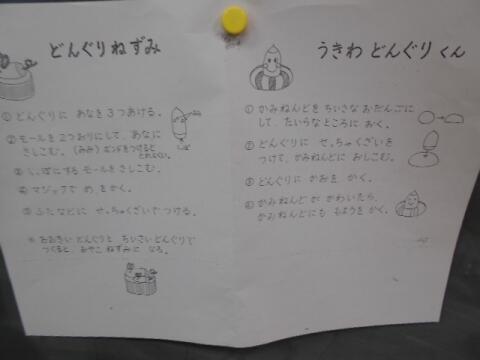 どんぐりねずみ
① どんぐりに あなを 3つあける。
② モールを 2つおりにして、あなに
さしこむ。(みみ) ボンドをつけると
とれにくい。
③ しっぽにする モールを さしこむ。
④ マジックで めをかく。
⑤ ふたなどに せっちゃくざいでつける。
※ おおきいどんぐりと ちいさいどんぐりで
つくると、おやこねずみに なる。
うきわ どんぐりくん
① かみねんどを ちいさな おだんごに
して、たいらなところに おく。
② どんぐりに せっちゃくざいを
つけて、かみねんどに おしこむ。
③ どんぐりに かおを かく。
④ かみねんど が かわいたら、
かみねんどにも もようを かく。